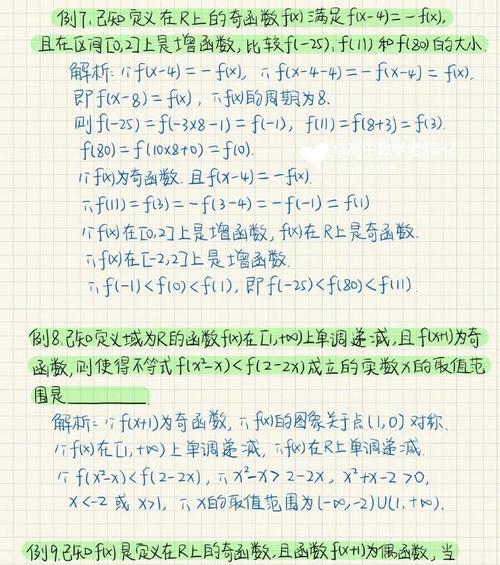 例7.已知定义在R上的奇函数f(x)满足f(x-4)=-f(x),
且在区间[0,2]上是增函数,比较f(-25),f(11)和f(80)的大小.
解析:∵f(x-4)=-f(x),∴f(x-4-4)=-f(x-4)=f(x).
即f(x-8)=f(x),∴f(x)的周期为8.
则f(-25)=f(-3×8-1)=f(-1),f(11)=f(8+3)=f(3).
f(80)=f(10×8+0)=f(0).
∵f(x)为奇函数.且f(x-4)=-f(x).
∴f(11)=f(3)=-f(3-4)=-f(-1)=f(1)
∵f(x)在[0,2]上是增函数,f(x)在R上是奇函数.
∴f(x)在[-2,2]上是增函数.
∴f(-1)<f(0)<f(1),即f(-25)<f(80)<f(11).
例8.已知定义域为R的函数f(x)在[1,+∞)上单调递减,且f(x+1)为奇
函数,则使得不等式f(x²-x)<f(2-2x)成立的实数x的取值范
围是________.
解析:∵f(x+1)为奇函数,∴f(x)的图象关于点(1,0)对称.
∵f(x)在[1,+∞)上单调递减,∴f(x)在R上单调递减.
∵f(x²-x)<f(2-2x),∴x²-x>2-2x,x²+x-2>0,
x<-2或x>1,∴x的取值范围为(-∞,-2)∪(1,+∞).
例9.已知f(x)是定义在R上的奇函数,且函数f(x+1)为偶函数,当